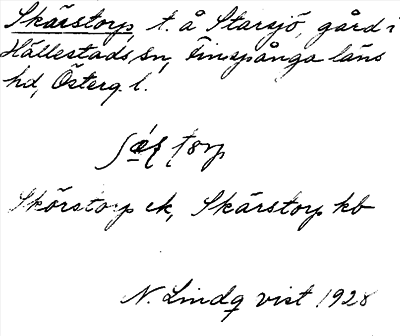 Skärstorp, t. å Starsjö, gård i
Hällestads sn, Finspånga läns
hd, Österg. l.
torp
Skörstorp ek, Skärstorp kb
N. Lindq vist 1928